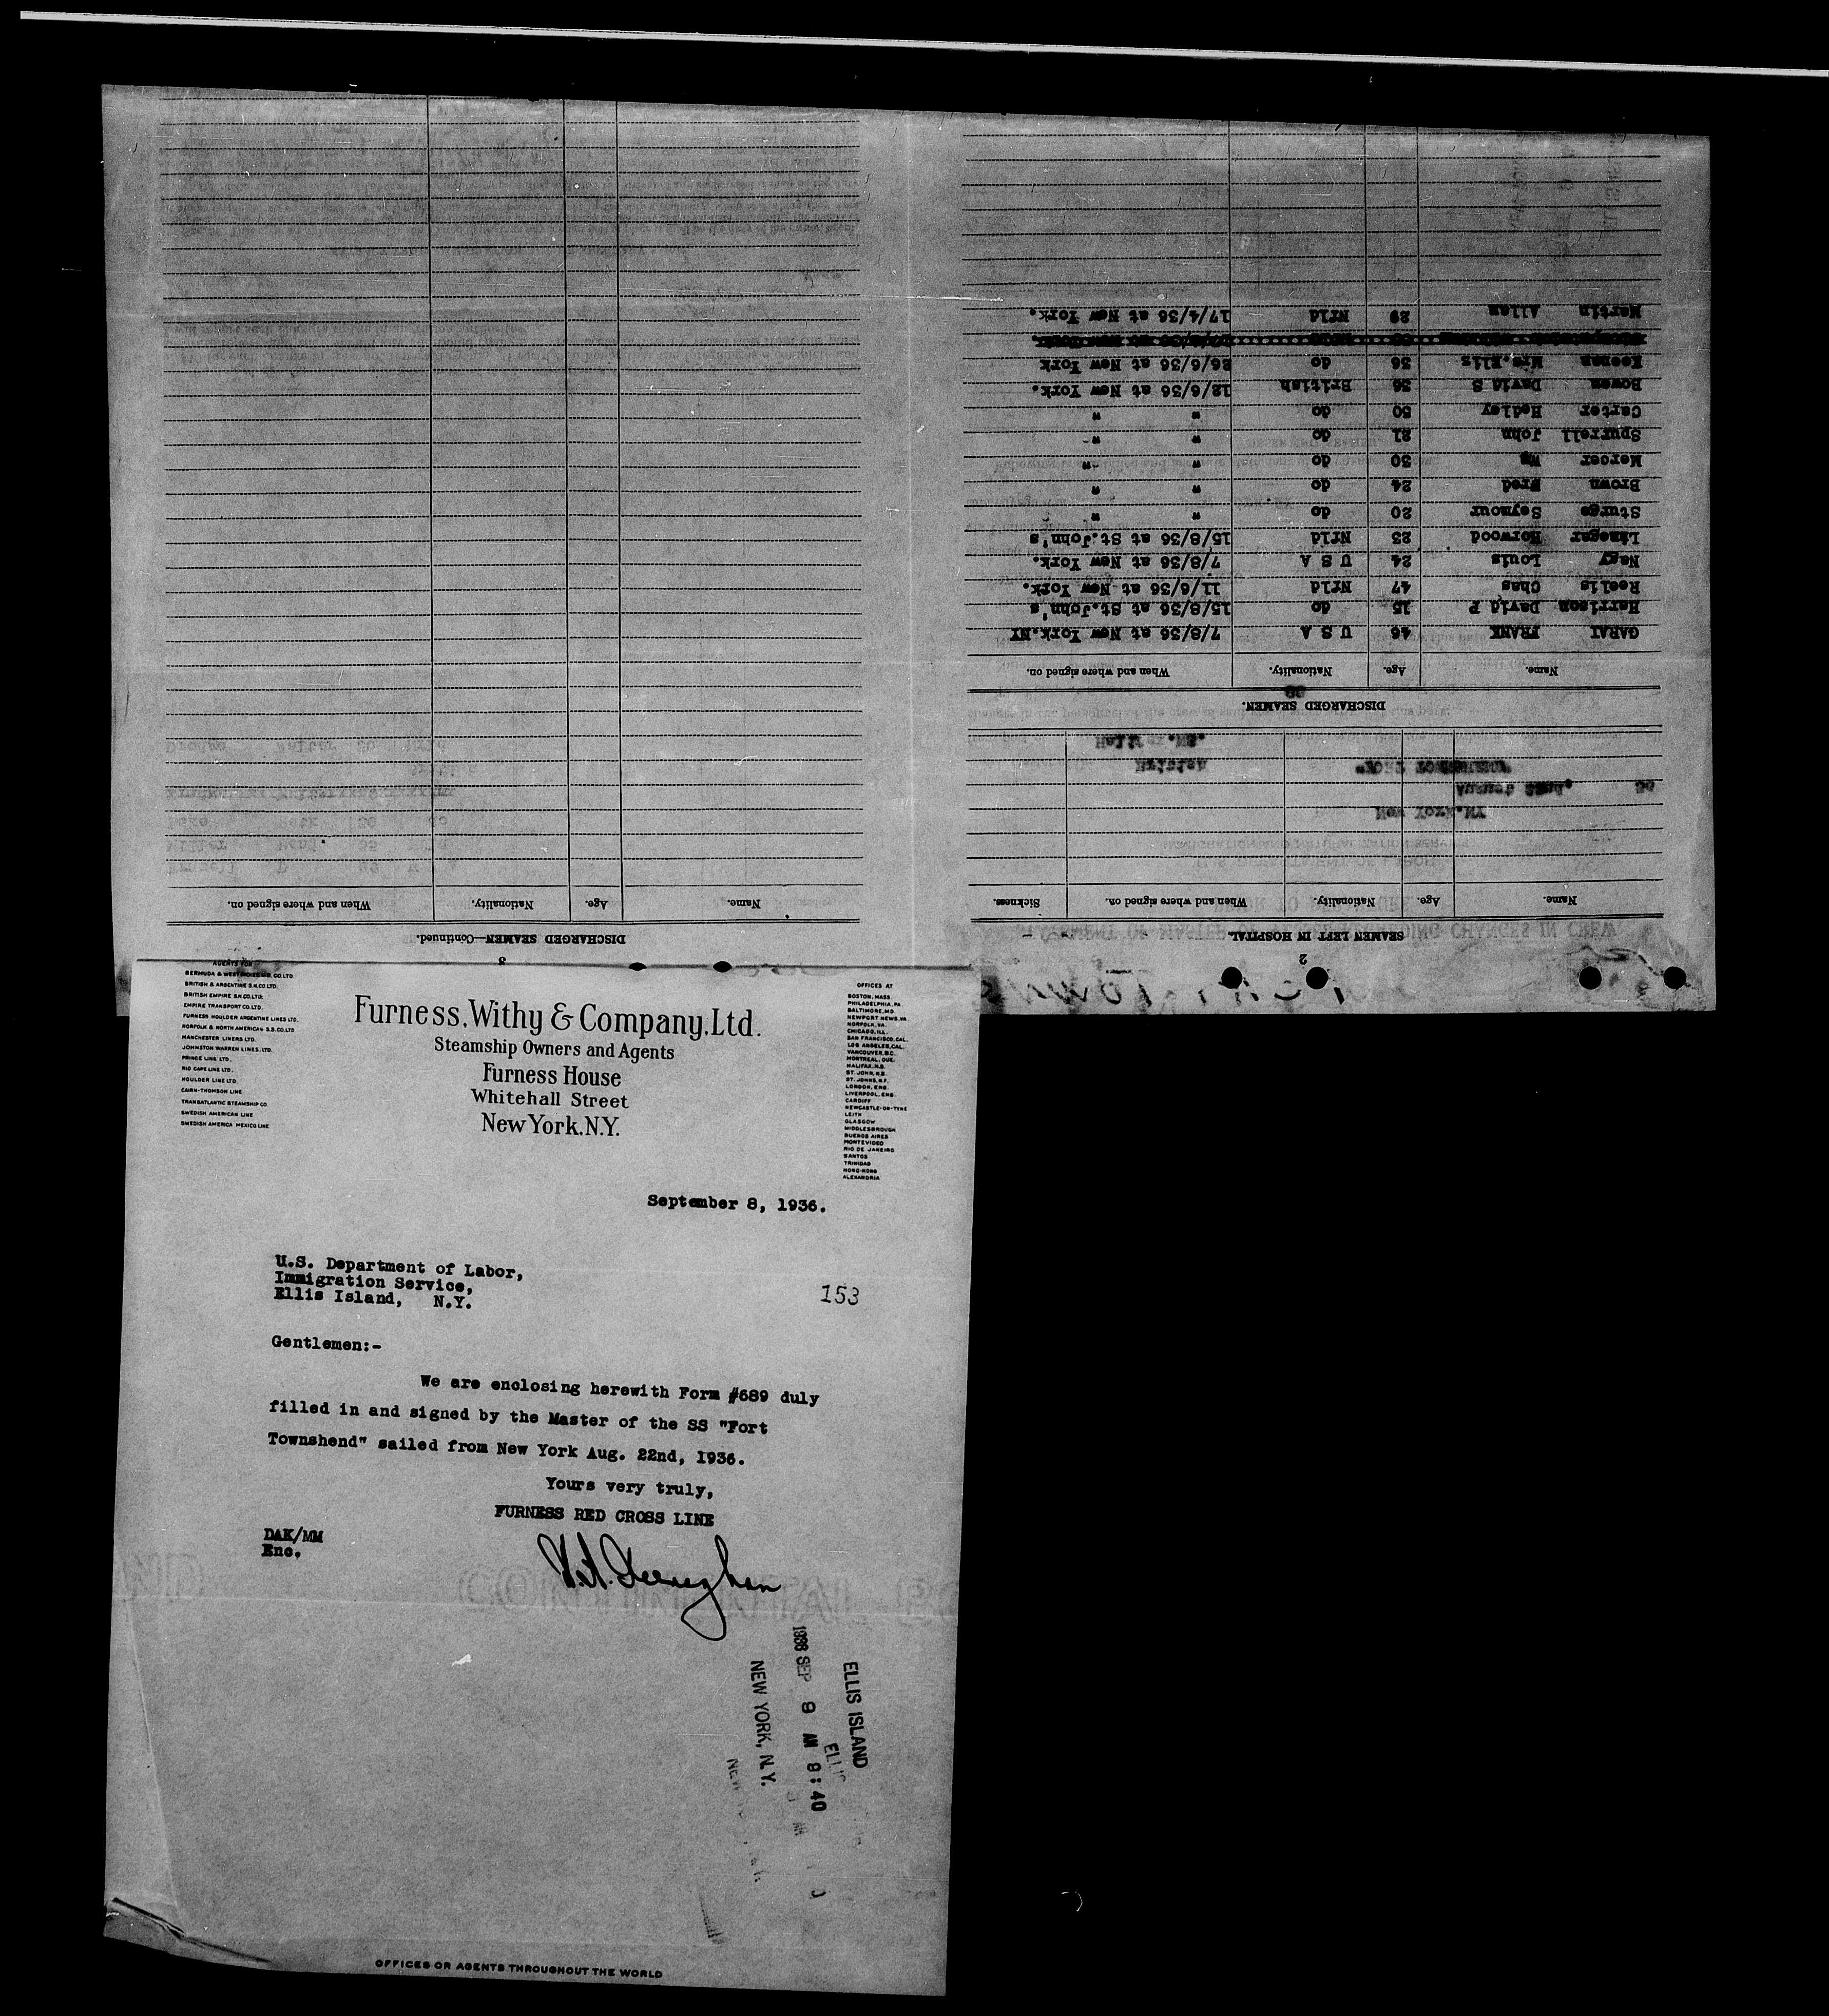 2
SEAMEN LEFT IN HOSPITAL.
Name. Age. Nationality. When and where signed on. Sickness.
DISCHARGED SEAMEN.
Name. Age. Nationality. When and where signed on.
GARAI FRANK 46 U S A 7/8/36 at New York.NY
Harrison David P 15 do 15/8/36 at St.John's
Reelis Chas 47 Nfld 11/6/36 at New York.
Nagy Louis 24 U S A 7/8/36 at New York.
Linegar Norwood 23 Nfld 15/8/36 at St.John's
Sturge Seymour 20 do " "
Brown Fred 24 do " "
Mercer Wm 30 do " "
Spurrell John 21 do " "
Carter Hedley 50 do " "
Bowen David S 36 British 12/6/36 at New York.
Keenan Mrs.Elis 36 do 26/6/36 at New York
Martin Allan 29 Nfld 17/4/36 at New York.
3
DISCHARGED SEAMEN—Continued.
Name. Age. Nationality. When and where signed on.
AGENTS FOR
BERMUDA & WEST INDIES S.S. CO. LTD.
BRITISH & ARGENTINE S.N.CO.LTD.
BRITISH EMPIRE S.N.CO.LTD.
EMPIRE TRANSPORT CO.LTD.
FURNESS HOULDER ARGENTINE LINES LTD.
NORFOLK & NORTH AMERICAN S.S.CO.LTD.
MANCHESTER LINERS LTD.
JOHNSTON WARREN LINES, LTD.
PRINCE LINE LTD.
RIO CAPE LINE LTD.
HOULDER LINE LTD.
CAIRN-THOMSON LINE
TRANSATLANTIC STEAMSHIP CO.
SWEDISH AMERICAN LINE
SWEDISH AMERICA MEXICO LINE
Furness, Withy & Company, Ltd.
Steamship Owners and Agents
Furness House
Whitehall Street
New York. N.Y.
OFFICES AT
BOSTON, MASS.
PHILADELPHIA, PA.
BALTIMORE, MD.
NEWPORT NEWS, VA.
NORFOLK, VA.
CHICAGO, ILL.
SAN FRANCISCO, CAL.
LOS ANGELES, CAL.
VANCOUVER, B.C.
MONTREAL, QUE.
HALIFAX, N.S.
ST. JOHN, N.B.
ST. JOHNS, N.F.
LONDON, ENG.
LIVERPOOL, ENG.
CARDIFF
NEWCASTLE-ON-TYNE
LEITH
GLASGOW
MIDDLESBROUGH
BUENOS AIRES
MONTEVIDEO
RIO DE JANEIRO
SANTOS
TRINIDAD
HONG-KONG
ALEXANDRIA
September 8, 1936.
U.S. Department of Labor,
Immigration Service,
Ellis Island, N.Y.
153
Gentlemen:-
We are enclosing herewith Form #689 duly
filled in and signed by the Master of the SS "Fort
Townshend" sailed from New York Aug. 22nd, 1936.
Yours very truly,
FURNESS RED CROSS LINE
DAK/MM
Enc.
ELLIS ISLAND
SEP 9 AM 9:40
NEW YORK, N.Y.
OFFICES OR AGENTS THROUGHOUT THE WORLD